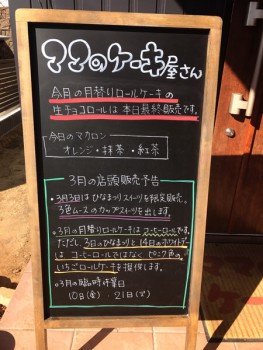 ママのケーキ屋さん
今月の月替りロールケーキの
生チョコロールは本日最終販売です。
今日のマカロン
オレンジ・抹茶・紅茶
3月の店頭販売予告
・3月3日はひなまつりスイーツを限定販売。
3色ムースのカップスイーツを出します。
・3月の月替りロールケーキはコーヒーロールです。
ただし、3日のひなまつりと14日のホワイトデー
は コーヒーロールではなく ピンク色の
いちごロールケーキを提供します。
・3月の臨時休業日
10日(金) 21日(火)